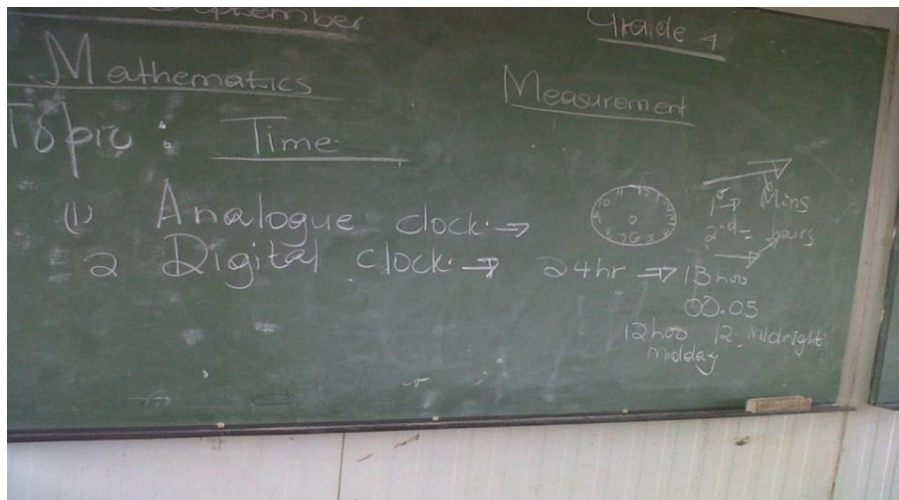 September Grade 4
Mathematics Measurement
Topic : Time
(1) Analogue clock → 1st → Mins
2nd = hours
2 Digital clock → 24hr → 13h00
00.05
12h00 12. Midnight
midday